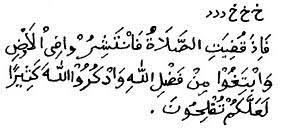 خ خ خ ددد
فَاِذَ قُضِيَتِ الصَّلَاةُ فَانْتَشِرُوْا فِى الْاَرْضِ
وَابْتَغُوْا مِنْ فَضْلِ اللهِ وَاذْكُرُوْا اللهَ كَثِيْرًا
لَعَلَّكُمْ تُفْلِحُوْنَ .